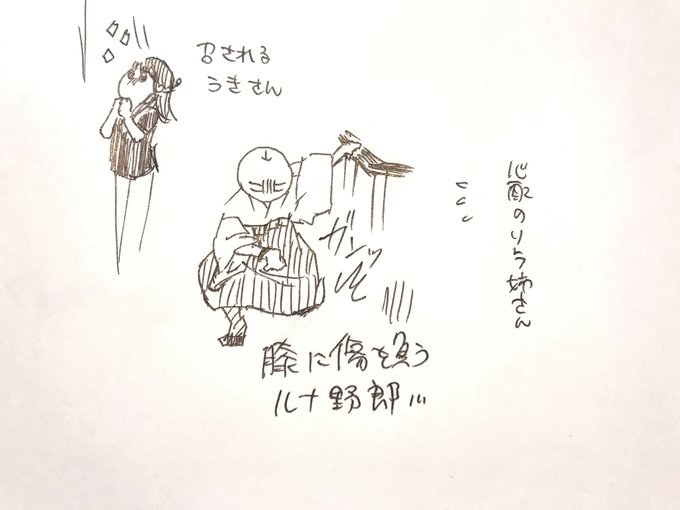 召される
うきさん
心配のりら姉さん
ガンッ
膝に傷を負う
ルナ野郎